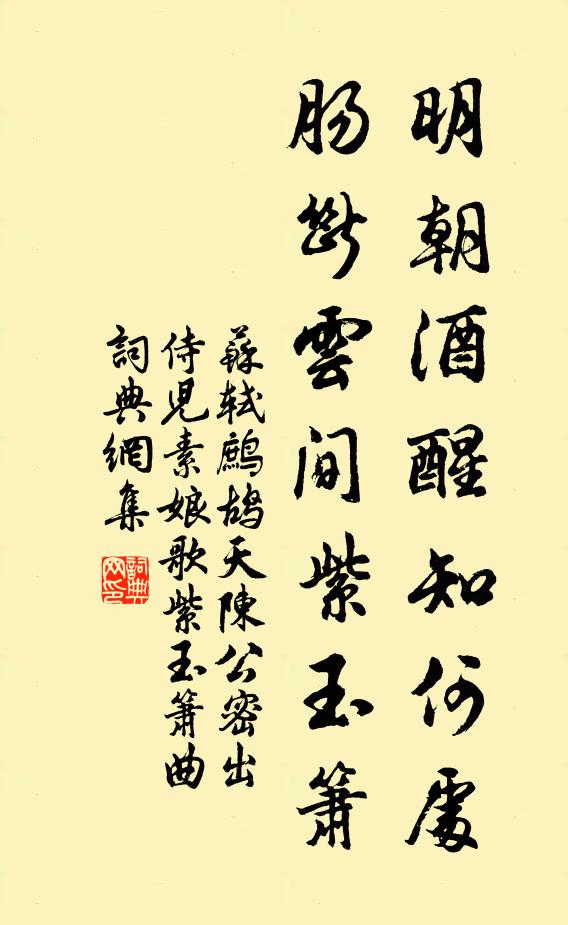 明朝酒醒知何處
腸斷雲間紫玉簫
蘇軾鷓鴣天陳公密出
侍兒素娘歌紫玉簫曲
詞典網集
詞典網印